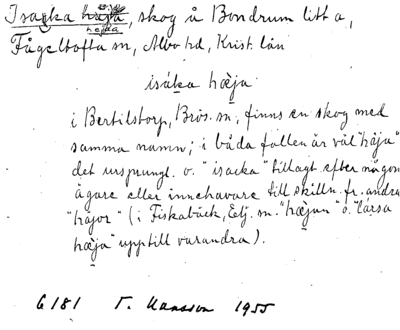 Isacka haja, skog å Bondrum litt a,
hejda
Fågeltofta sn, Albo hd, Krist. län
isáka hæ̀ja
i Bertilstorp, Brös. sn, finns en skog med
samma namn; i båda fallen är väl "håja"
det ursprungl. o. "isacka" tillagt efter någon
ägare eller innehavare till skilln. fr. andra
"håjor" (i Fiskabäck, Eelj. sn. "hæ̀jan" o. "lársa
hæ̀ja" upptill varandra).
G 181 Hansson 1955